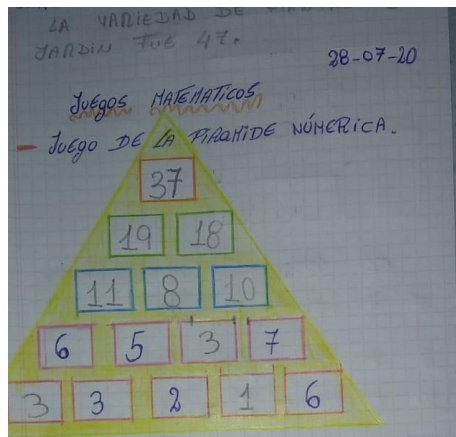 LA VARIEDAD DE
JARDIN FUE 47.
28-07-20
JUEGOS MATEMATICOS
- JUEGO DE LA PIRAMIDE NÚMERICA.
37
19 18
11 8 10
6 5 3 7
3 3 2 1 6